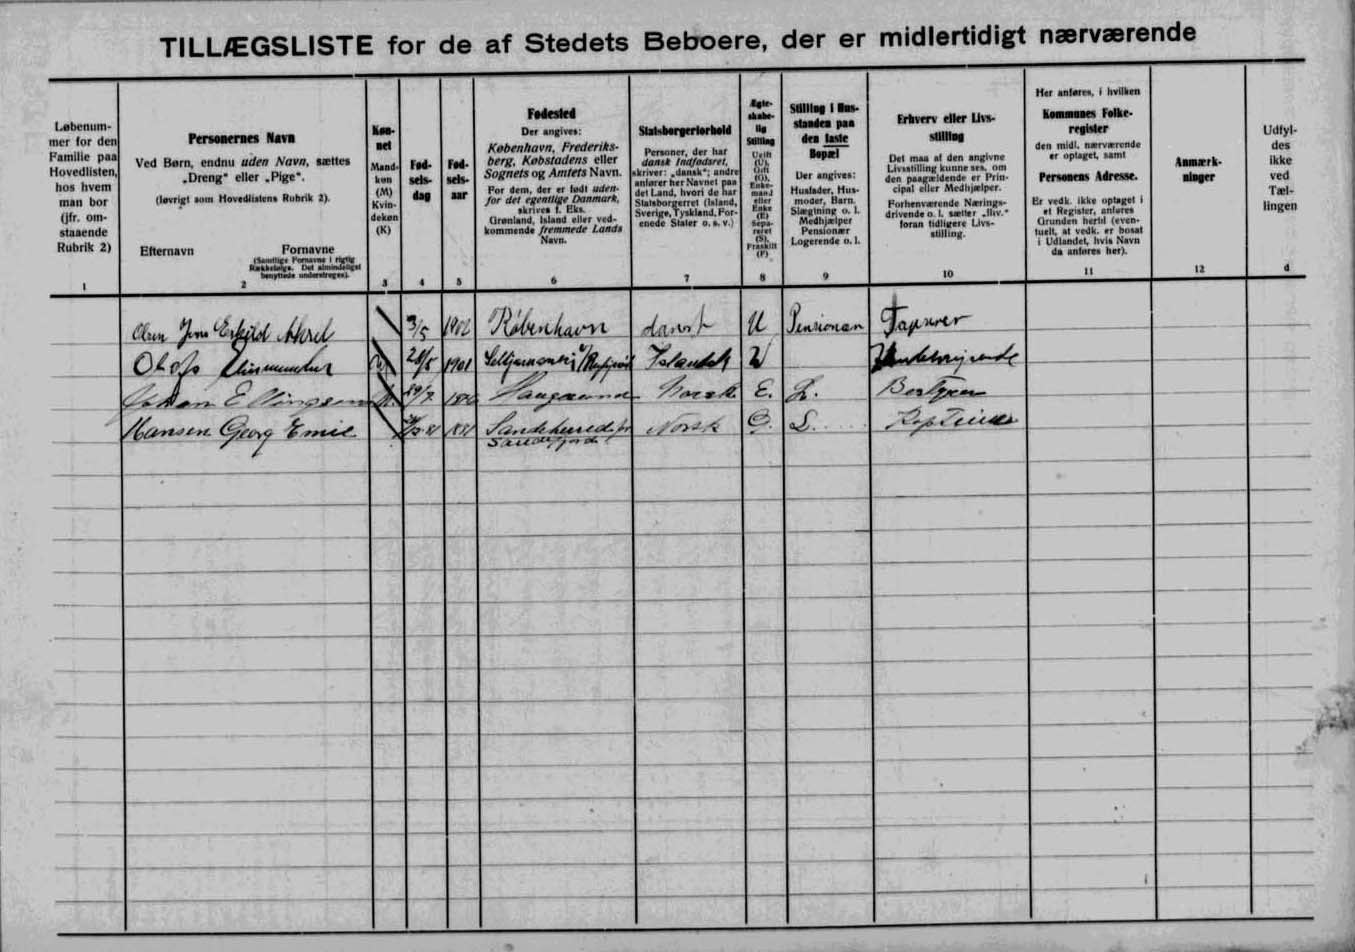 TILLÆGSLISTE for de af Stedets Beboere, der er midlertidigt nærværende
Løbenum-
mer for den
Familie paa
Hovedlisten,
hos hvem
man bor
(jfr. om-
staaende
Rubrik 2)
1
Personernes Navn
Ved Børn, endnu uden Navn, sættes
„Dreng" eller „Pige".
(Iøvrigt som Hovedlistens Rubrik 2).
Efternavn
Fornavne
(Samtlige Fornavne i rigtig
Rækkefølge. Det almindeligst
benyttede understreges).
2
Køn-
net
Mand-
køn
(M)
Kvin-
dekøn
(K)
3
Fød-
sels-
dag
4
Fød-
sels-
aar
5
Fødested
Der angives:
København, Frederiks-
berg, Købstadens eller
Sognets og Amtets Navn.
For dem, der er født uden-
for det egentlige Danmark,
skrives f. Eks.
Grønland, Island eller ved-
kommende fremmede Lands
Navn.
6
Statsborgerforhold
Personer, der har
dansk Indfødsret,
skriver: „dansk"; andre
anfører her Navnet paa
det Land, hvori de har
Statsborgerret (Island,
Sverige, Tyskland, For-
enede Stater o. s. v.)
7
Ægte-
skabe-
lig
Stilling
Ugift
(U),
Gift
(G),
Enke-
mand
eller
Enke
(E)
Sepa-
reret
(S),
Fraskilt
(F)
8
Stilling i Hus-
standen paa
den faste
Bopæl
Der angives:
Husfader, Hus-
moder, Barn.
Slægtning o. l.
Medhjælper
Pensionær
Logerende o. l.
9
Erhverv eller Livs-
stilling
Det maa af den angivne
Livsstilling kunne ses, om
den paagældende er Prin-
cipal eller Medhjælper.
Forhenværende Nærings-
drivende o. l. sætter „fhv."
foran tidligere Livs-
stilling.
10
Her anføres, i hvilken
Kommunes Folke-
register
den midl. nærværende
er optaget, samt
Personens Adresse.
Er vedk. ikke optaget i
et Register, anføres
Grunden hertil (even-
tuelt, at vedk. er bosat
i Udlandet, hvis Navn
da anføres her).
11
Anmærk-
ninger
12
Udfyl-
des
ikke
ved
Tæl-
lingen
d
Olsen Jens Eskild Aksel 3/5 1902 København dansk U Pensionær Tapserer
Olafs 28/5 1901 Islandsk U
Johan Ellingsen M. Haugesund Norsk E. L.
Hansen Georg Emil Sandeherred pr Norsk G. L.
Sandefjord